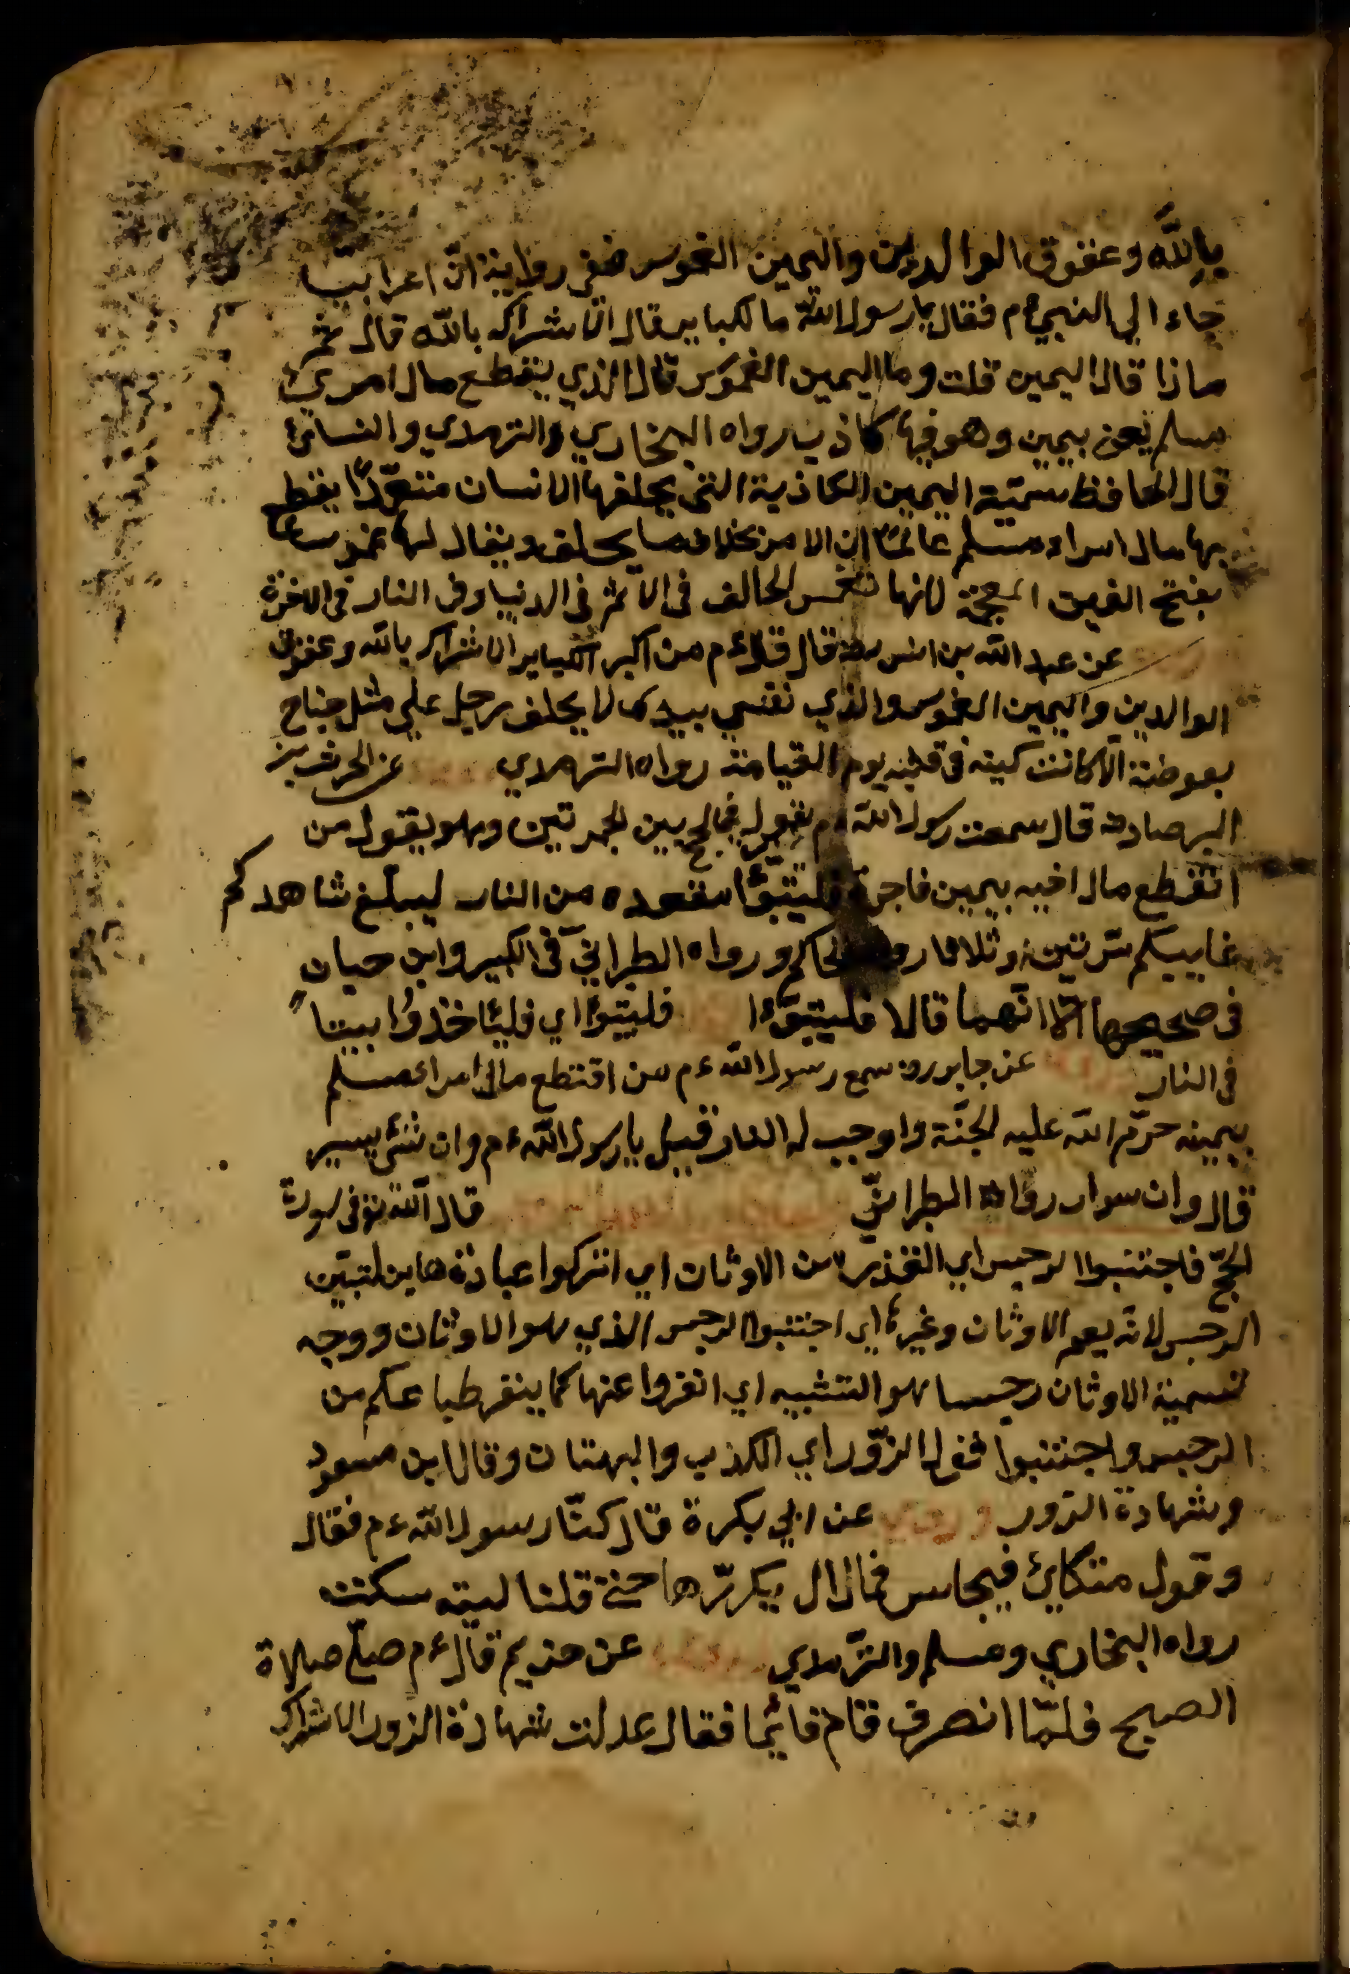 بالله وعقوق الوالدين واليمين الغموس ففي رواية انّ اعرابيّا
جاء الي النبيء م فقال يا رسول الله ما لكباير قال الاشراك بالله قال ثم
ماذا قال اليمين قلت وما اليمين الغموس قال الذي يقطع مال امرئ
مسلم يعني بيمين وهو فيها كاذب رواه البخاري والترمدي والنسائ
قال الحافظ سميّة اليمين الكاذبة التي يحلفها الانسان متعمّدًا يقطع
بها مال امراء مسلم عالمًا ان الامر بخلاف ما يحلف ويقال لها غموسا
بفتح الغين المعجمة لانها تغمس الحالف في الاثم في الدنيا وفي النار في الاخرة
عن عبد الله بن انس رض قال قال ء م من اكبر الكباير الاشراك بالله وعقوق
الوالدين واليمين الغموس والذي نفسي بيده لا يحلف رجل علي مثل جناح
بعوضة الّا كانت كية في قلبه يوم القيامة رواه الترمدي عن الحرث بن
البرصاء قال سمعت رسول الله ء م في الحج بين الجمرتين وهو يقول من
اقتطع مال اخيه بيمين فاجرة فليتبوّأ مقعده من النار ليبلّغ شاهدكم
غايبكم مرّتين او ثلاثا رواه الحاكم ورواه الطبراني في الكبير وابن حبان
في صحيحها الّا انّهما قالا فليتبوّءا فليتبوّا اي فليأخذوا بيتاً
في النار عن جابر رض سمع رسول الله ء م من اقتطع مال امراء مسلم
بيمينه حرّم الله عليه الجنّة واوجب له النار قيل يا رسول الله ء م وان شئ يسير
قال وان سوار رواه الطبرانيّ قال الله تع في سورة
الحجّ فاجتنبوا الرجس اي القذر من الاوثان اي اتركوا عبادة ها من لتبيّن
الرجس لانّه يعم الاوثان وغيره اي اجتنبوا الرجس الذي هو الاوثان ووجه
تسمية الاوثان رجسا هو التشبيه اي انفروا عنها كما ينفر طباعكم من
الرجس واجتنبوا قول الزّور اي الكذب والبهتان وقال ابن مسعود
وشهادة الزور وروي عن ابي بكرة قال كنّا رسول الله ء م فقال
وقول متكائ فيجلس فما زال يكررّها حتي قلنا ليته سكت
رواه البخاري ومسلم والترمدي عن خديم قال ء م صلّ صلاة
الصبح فلمّا انصرف قام قائما فقال عدلت شهادة الزور الاشراك